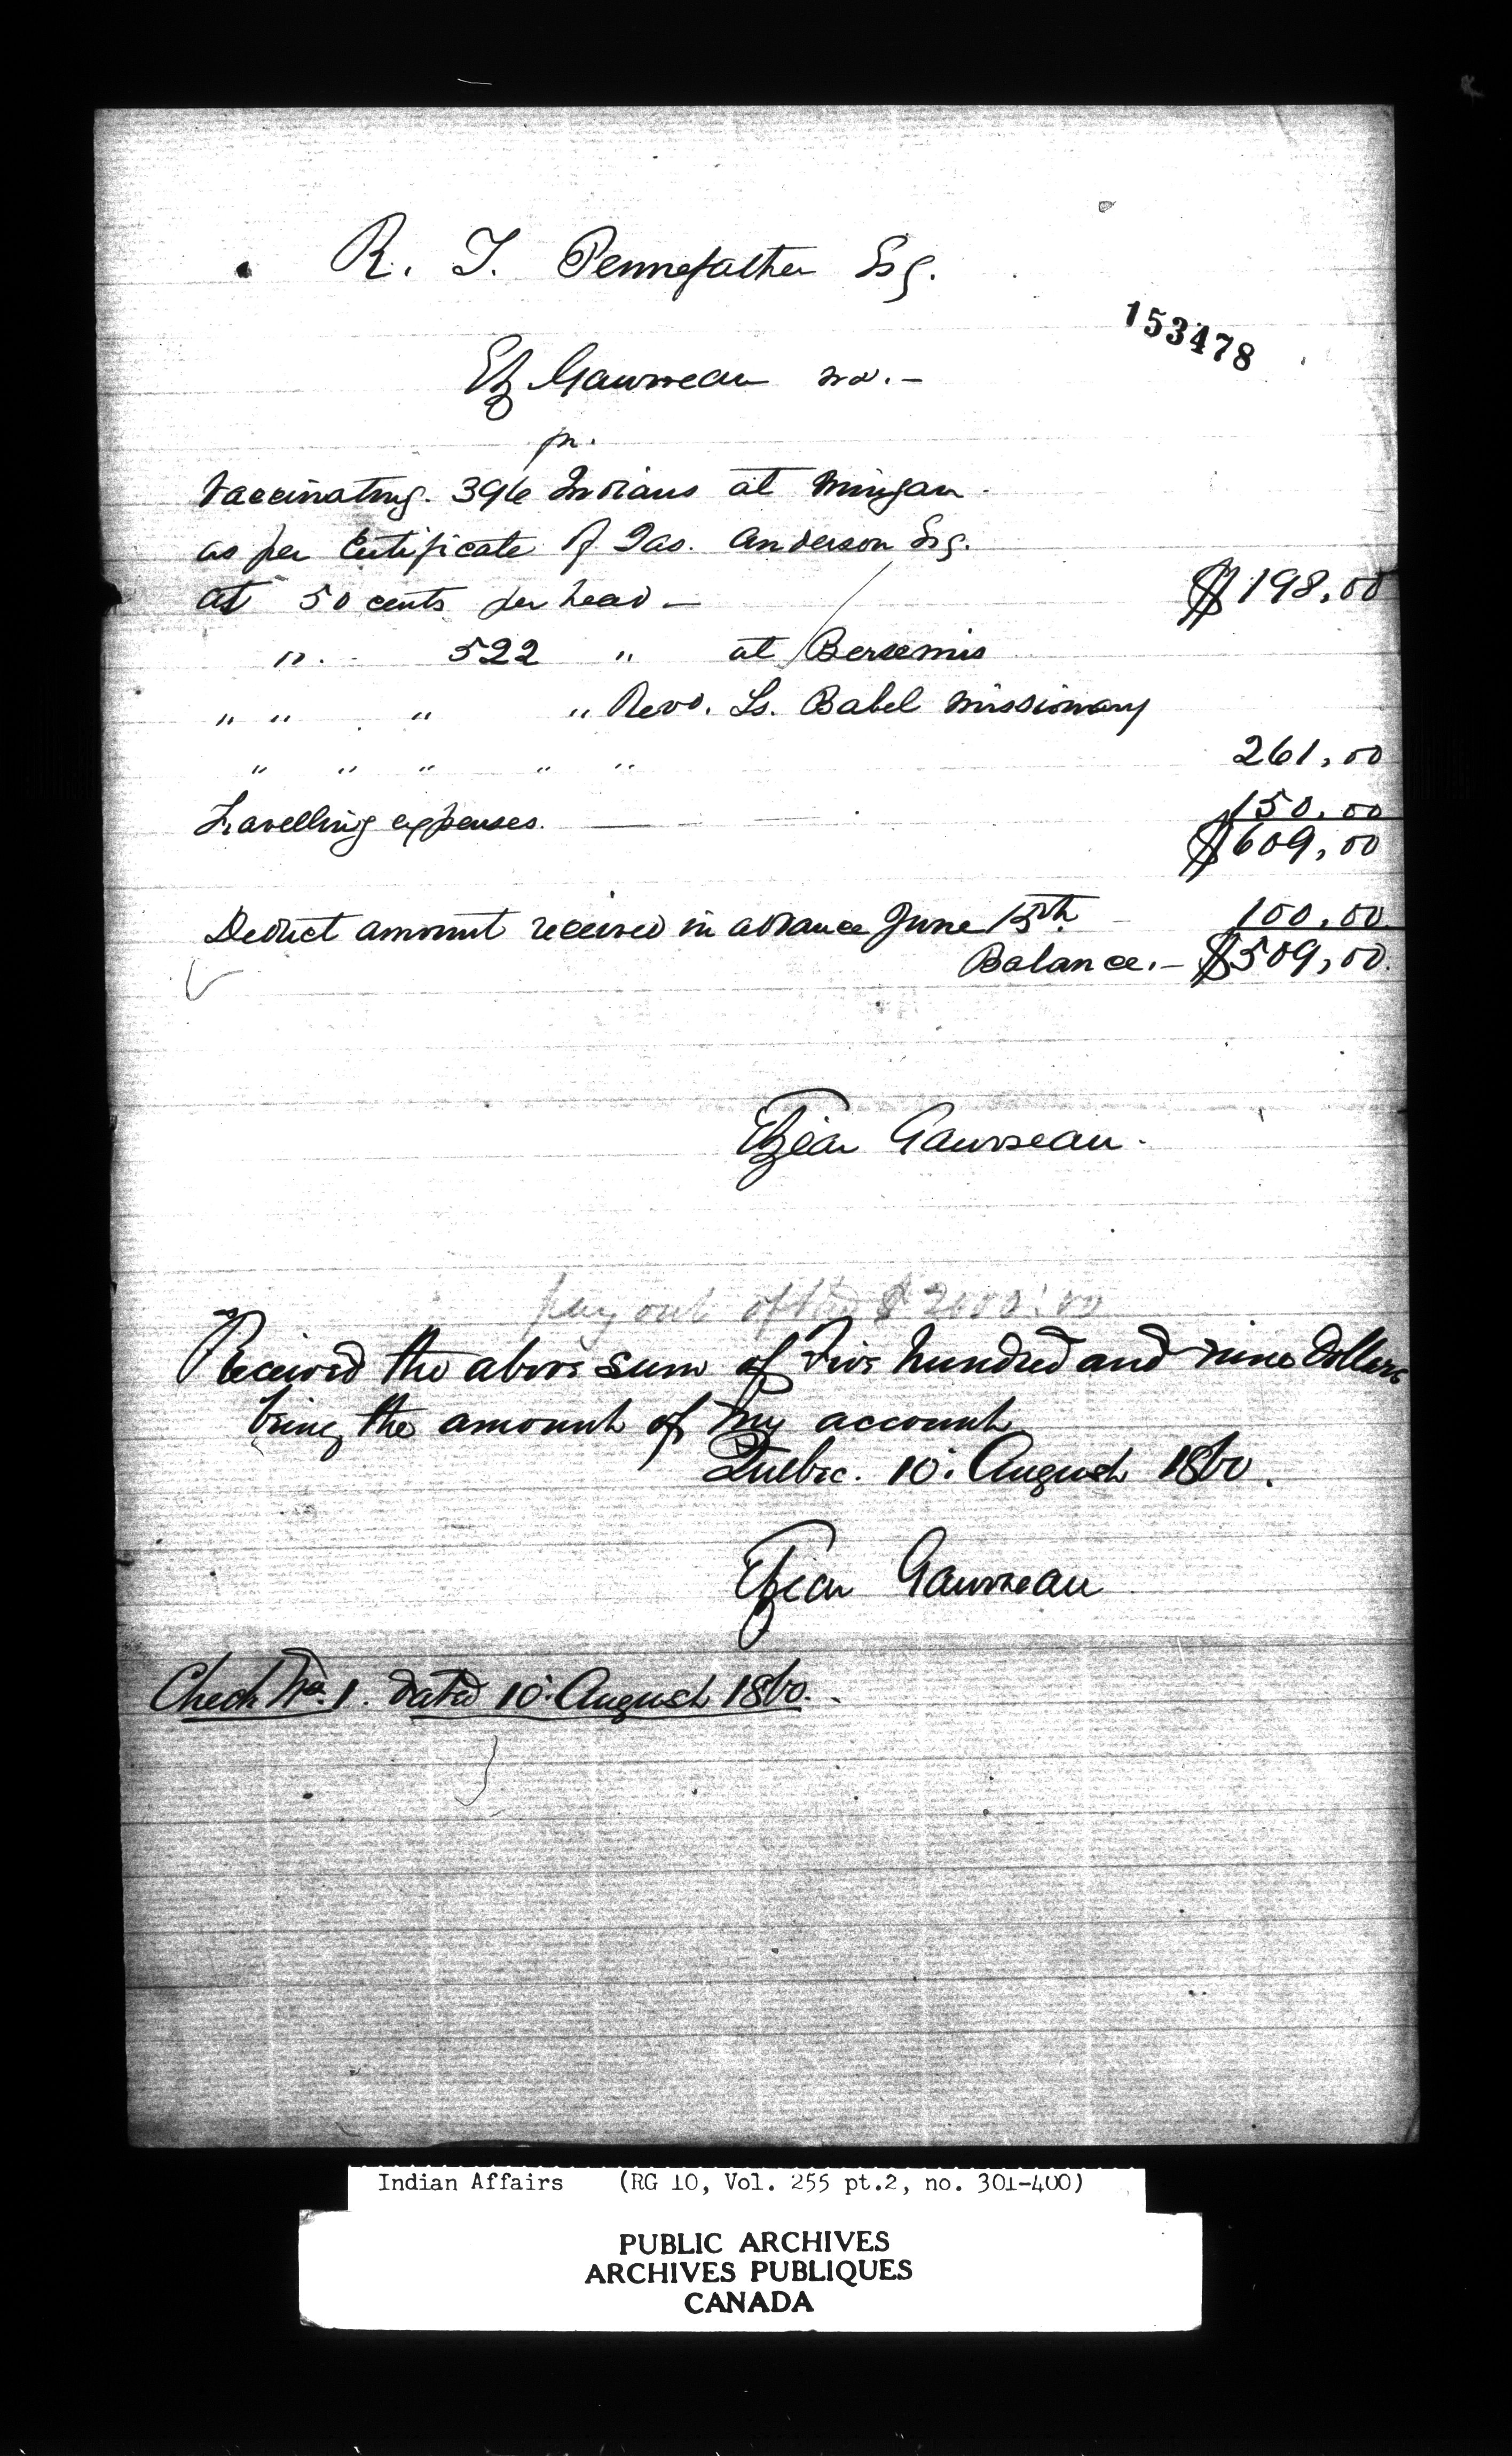 R. T. Pennefather Esq.
153478
Elz Gauvreau M.D. -
pr.
Vaccinating. 396 Indians at Mingan.
as per Certificate of Jas. Anderson Esq.
at 50 cents per head — $198,00
" 522 " at Bersemis
" " " " Revd. Ls. Babel Missionary
" " " " " 261,00
Travelling expenses. — 150,00
$609,00
Deduct amount received in advance June 15th 100,00
Balance. - $509,00.
Elzéar Gauvreau.
pay out of the $2000.00
Received the above sum of Five hundred and nine dollars
being the amount of my account
Quebec. 10. August 1860.
Elzéar Gauvreau
Check No. 1. dated 10. August 1860.
Indian Affairs (RG 10, Vol. 255 pt.2, no. 301-400)
PUBLIC ARCHIVES
ARCHIVES PUBLIQUES
CANADA